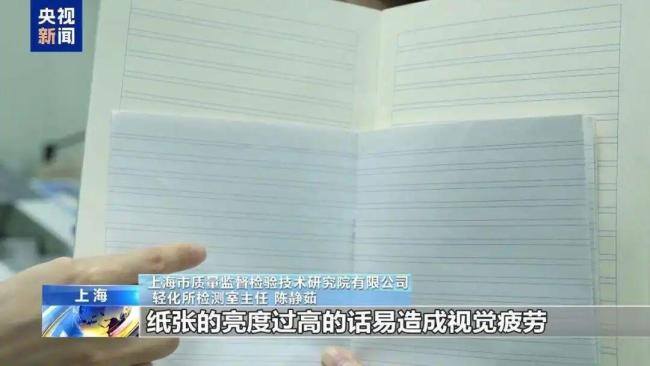 央视
新闻
上海市质量监督检验技术研究院有限公司
上海
轻化所检测室主任 陈静茹
纸张的亮度过高的话易造成视觉疲劳